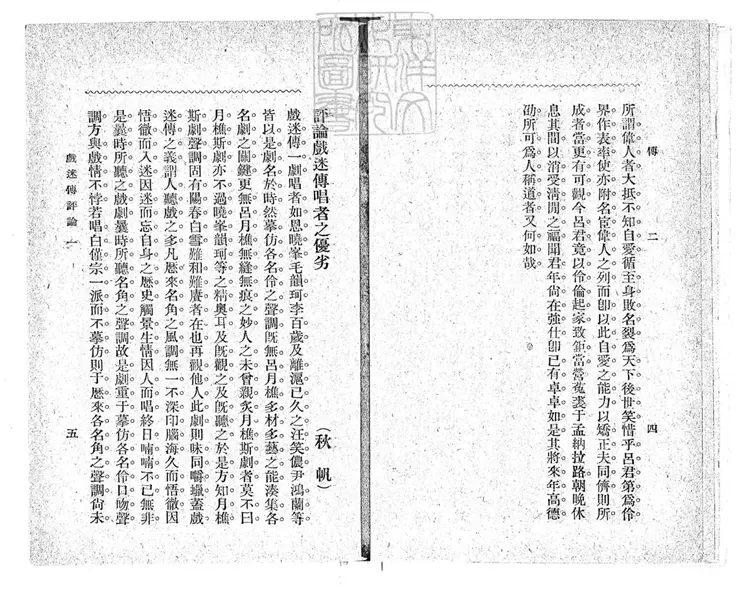 傳
二
四
所謂偉人者大抵不知自愛循至身敗名裂爲天下後世笑惜乎呂君第爲伶
界作表率使亦附名宦偉人之列而卽以此自愛之能力以矯正夫同儕則所
成者當更有可觀今呂君竟以伶倫起家致鉅富營菟裘于孟納拉路朝晚休
息其間以消受淸閒之福聞君年尙在強仕卽已有卓卓如是其將來年高德
劭所可爲人稱道者又何如哉
評論戲迷傳唱者之優劣
（秋帆）
戲迷傳一劇唱者如恩曉峯毛韻珂李百歲及離滬已久之汪笑儂尹鴻蘭等
皆以是劇名於時然摹仿各名伶之聲調旣無呂月樵多材多藝之能湊集各
名劇之關鍵更無呂月樵無縫無痕之妙人之未曾親炙月樵斯劇者莫不曰
月樵斯劇亦不過曉峯韻珂等之精奧耳及旣觀之及旣聽之於是方知月樵
斯劇聲調固有陽春白雪難和難賡者在也再觀他人此劇則味同嚼蠟蓋戲
迷傳之義謂人聽戲之多凡歷來名角之風調無一不深印腦海久而悟徹因
悟徹而入迷因迷而忘自身之歷史觸景生情因人而唱終日喃喃不已無非
是曩時所聽之戲劇曩時所聽名角之聲調故是劇重于摹仿各名伶口吻聲
調方與戲情不悖若唱白僅宗一派而不摹仿則于歷來各名角之聲調尙未
戲迷傳評論
一
五